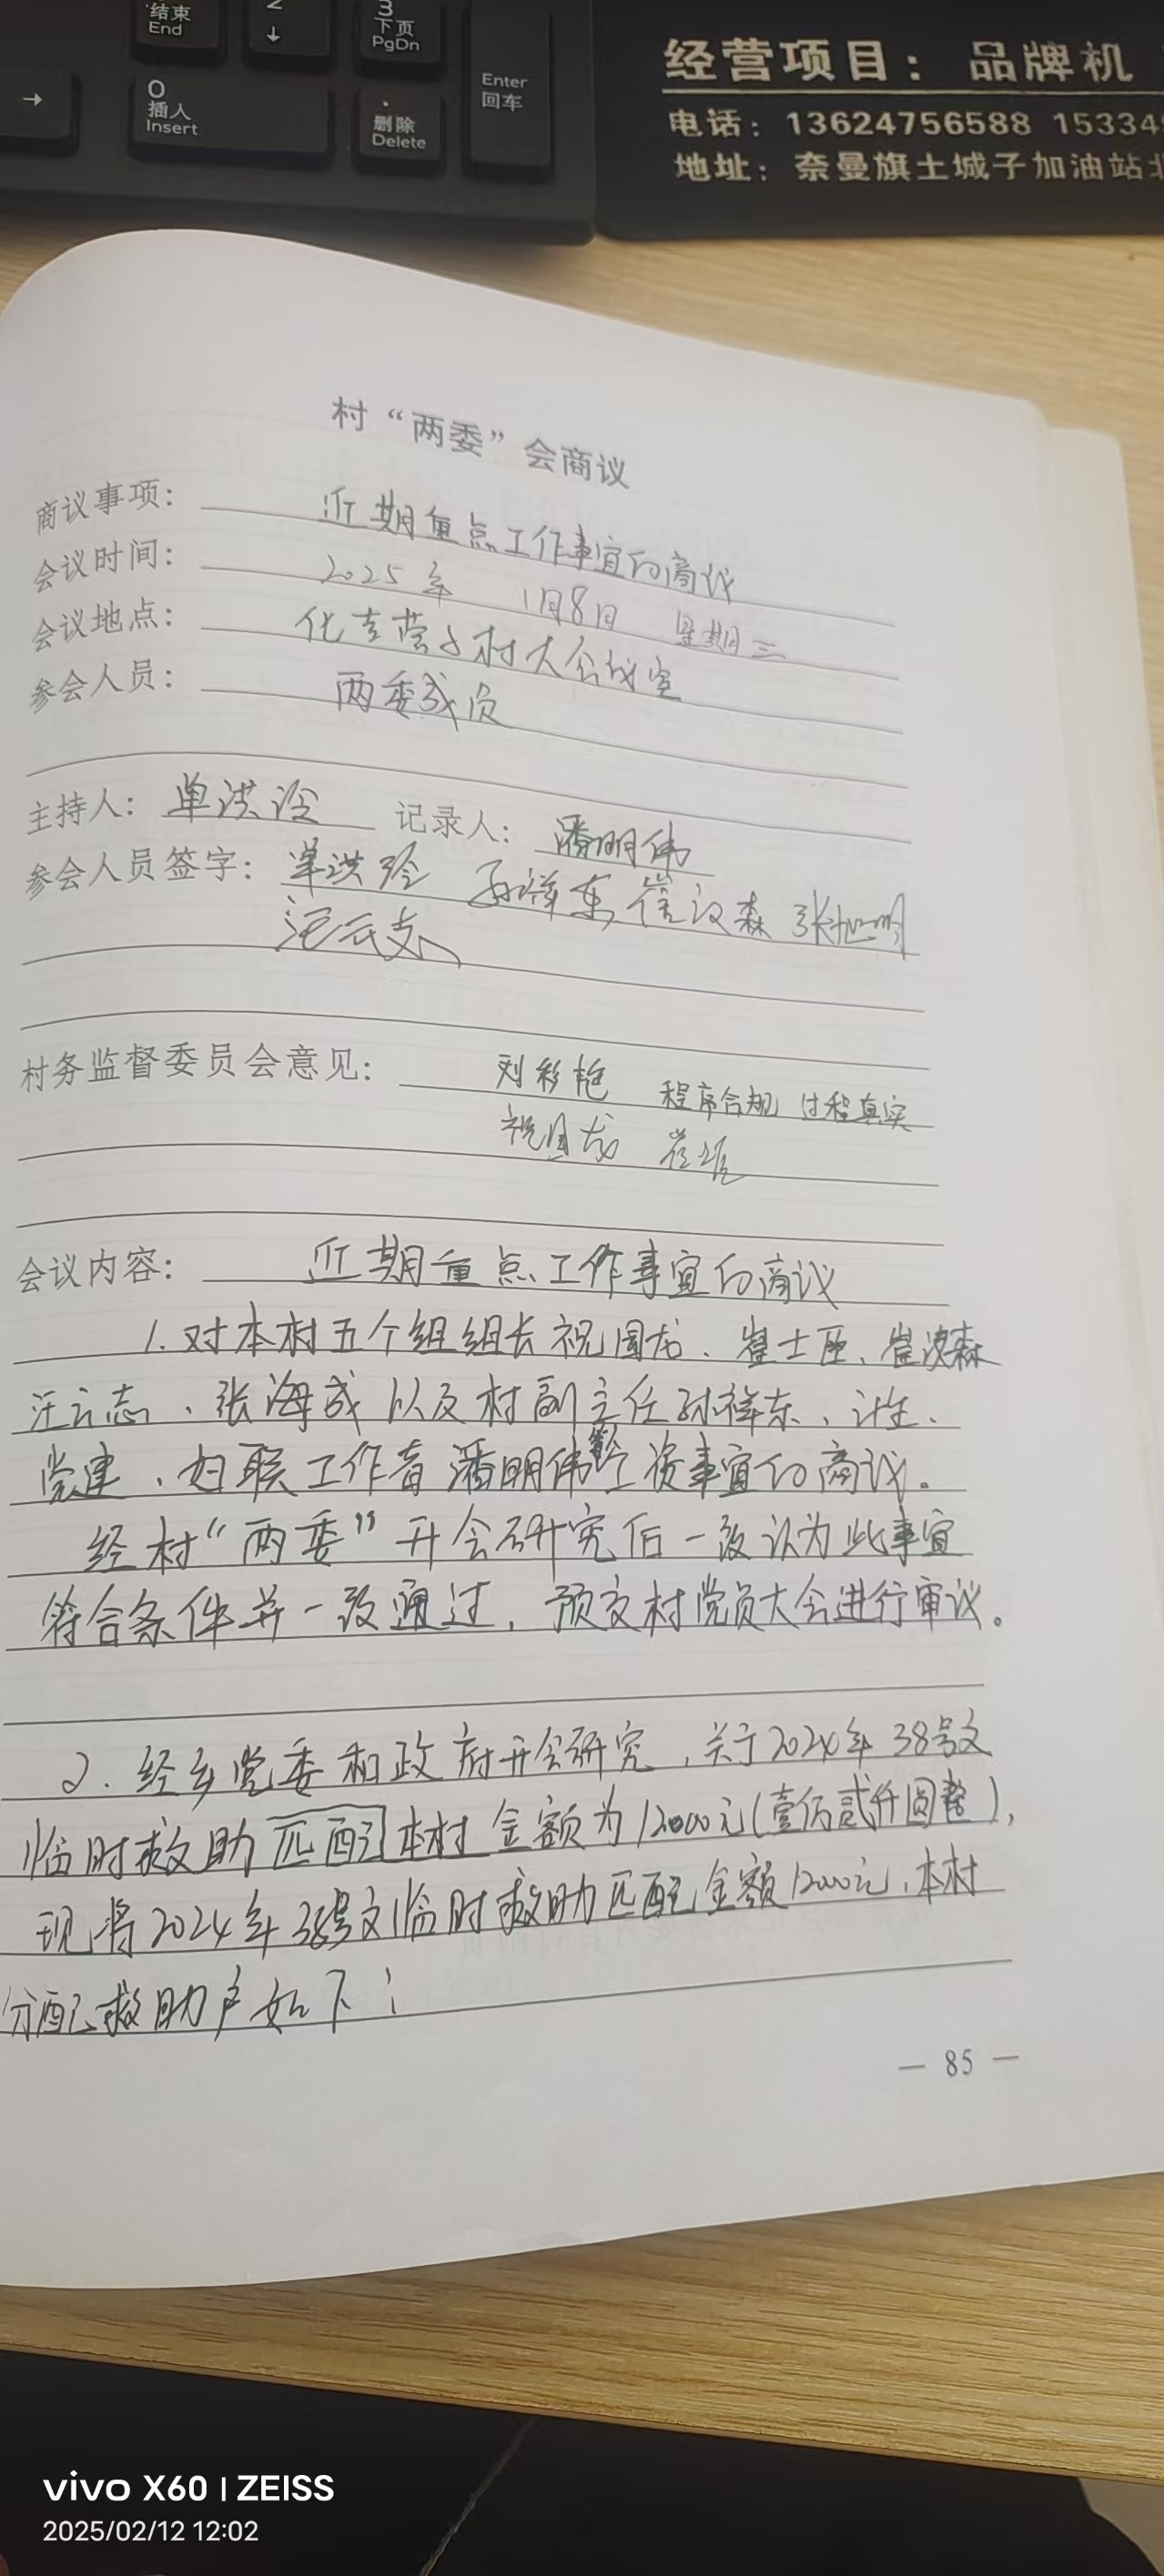 结束
End
2
↓
3
下页
PgDn
→
0
插入
Insert
.
删除
Delete
Enter
回车
经营项目： 品牌机
电话：13624756588 15334
地址：奈曼旗土城子加油站北
村“两委”会商议
商议事项： 近期重点工作事宜的商议
会议时间： 2025年 1月8日 星期三
会议地点： 化吉营子村大会议室
参会人员： 两委成员
主持人：单洪玲 记录人：潘明伟
参会人员签字：单洪玲 孙祥东 崔汉森 张旭明
村务监督委员会意见： 刘彩艳 程序合规 过程真实
祝国龙
会议内容： 近期重点工作事宜的商议
1.对本村五个组组长祝国龙、崔士臣、崔汉森
汪云志、张海成以及村副主任孙祥东、计生、
党建、妇联工作者潘明伟等工资事宜的商议。
经村“两委”开会研究后一致认为此事宜
符合条件并一致通过，预交村党员大会进行审议。
2.经乡党委和政府开会研究，关于2024年38号文
临时救助匹配本村金额为12000元(壹佰贰仟圆整)，
现将2024年38号文临时救助匹配金额12000元，本村
分配救助户如下：
— 85 —
vivo X60 | ZEISS
2025/02/12 12:02